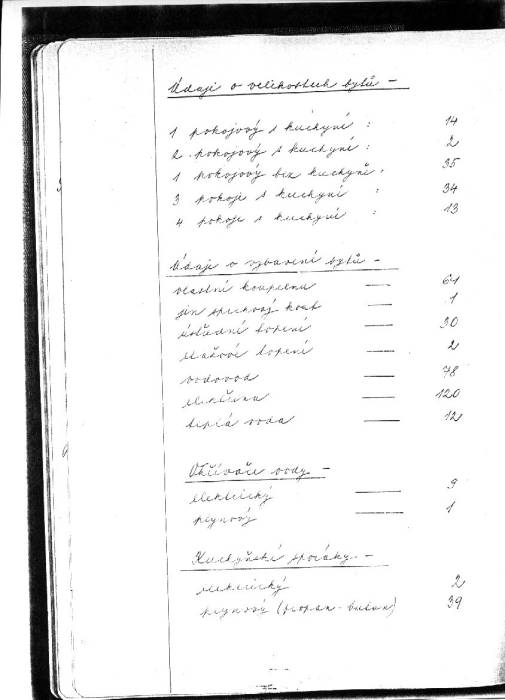 Údaje o velikostech bytů -
1 pokojový s kuchyní : 14
2 pokojový s kuchyní : 2
1 pokojový bez kuchyně : 35
3 pokoje s kuchyní : 34
4 pokoje s kuchyní : 13
Údaje o vybavení bytů -
vlastní koupelnu — 64
jen sprchový kout — 1
ústřední topení — 30
etážové topení — 2
vodovod — 78
elektřina — 120
teplá voda — 12
Ohřívače vody -
elektrický — 9
plynový — 1
Kuchyňské sporáky -
elektrický 2
plynový (propan-butan) 39